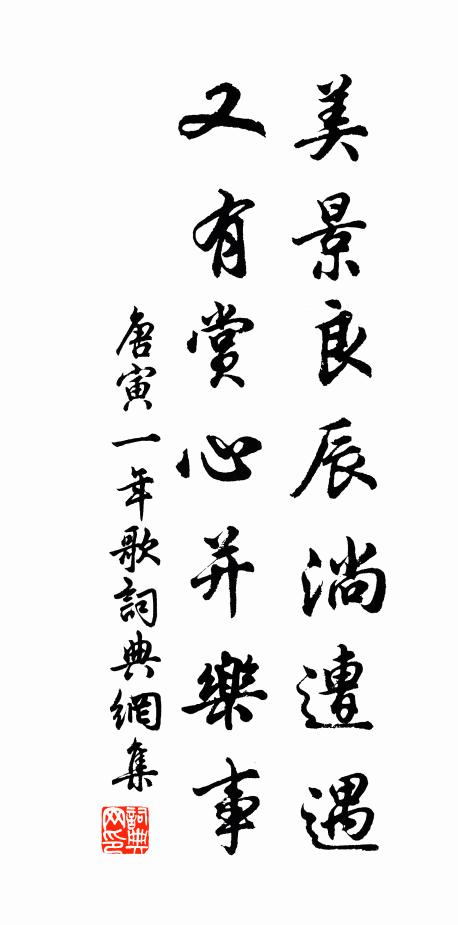 美景良辰淌遭遇
又有賞心并樂事
唐寅一年歌詞典網集
詞典网印